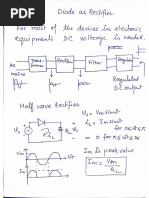 Diode as Rectifier
For most of the devices in electronic
equipments DC voltage is needed.
AC
Trans-
former
Rectifier
Filter
Regulator
Regulated
DC
output
mains
Half wave Rectifier
Vi = Vm sin ωt
iL = Im sin ωt
for 0 ≤ ωt ≤ π
= 0 for π ≤ ωt ≤ 2π
RL
Im is peak value
Im = Vm
RL
Vm
Im
π
2π